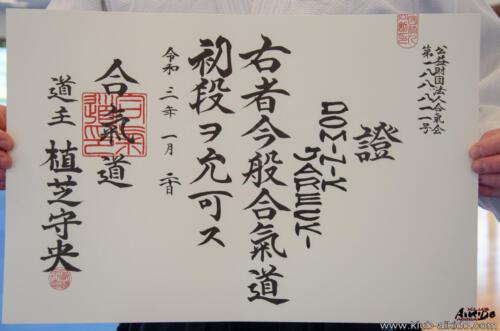 公益財団法人合氣会
第一八八八一一号
證
DOMINIK
JARECKI
右者今般合氣道
初段ヲ允可ス
令和三年一月
合氣道
道主 植芝守央
Aikido
www.klub-aikido.com